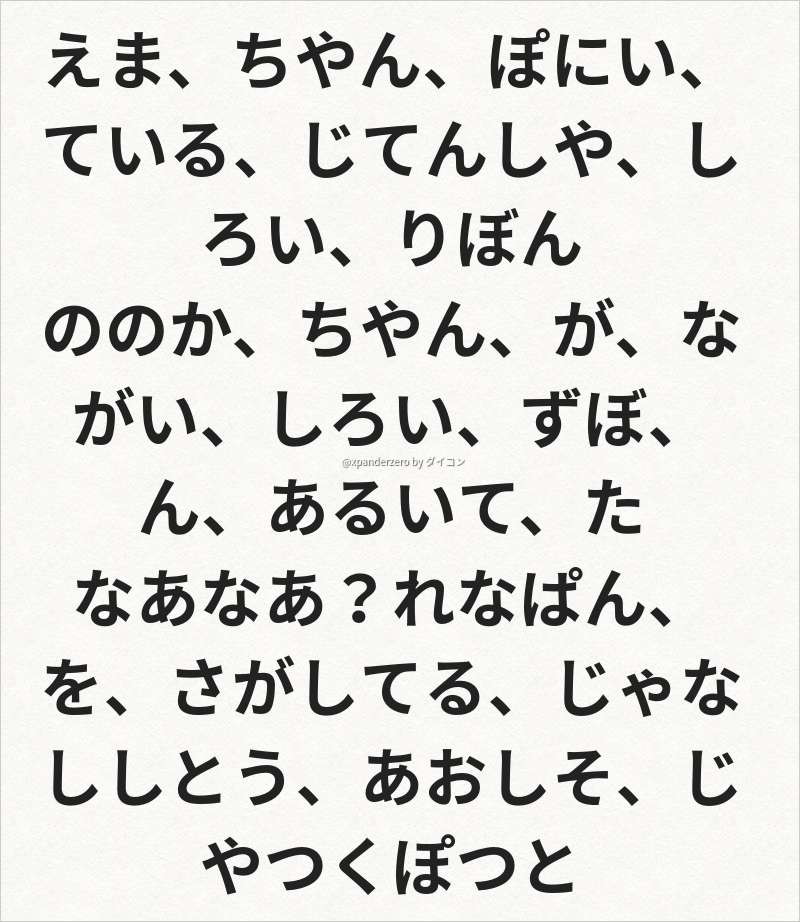 えま、ちやん、ぽにい、
ている、じてんしや、し
ろい、りぼん
ののか、ちやん、が、な
がい、しろい、ずぼ、
ん、あるいて、た
なあなあ？れなぱん、
を、さがしてる、じゃな
ししとう、あおしそ、じ
やつくぽつと
@xpanderzero by ダイコン